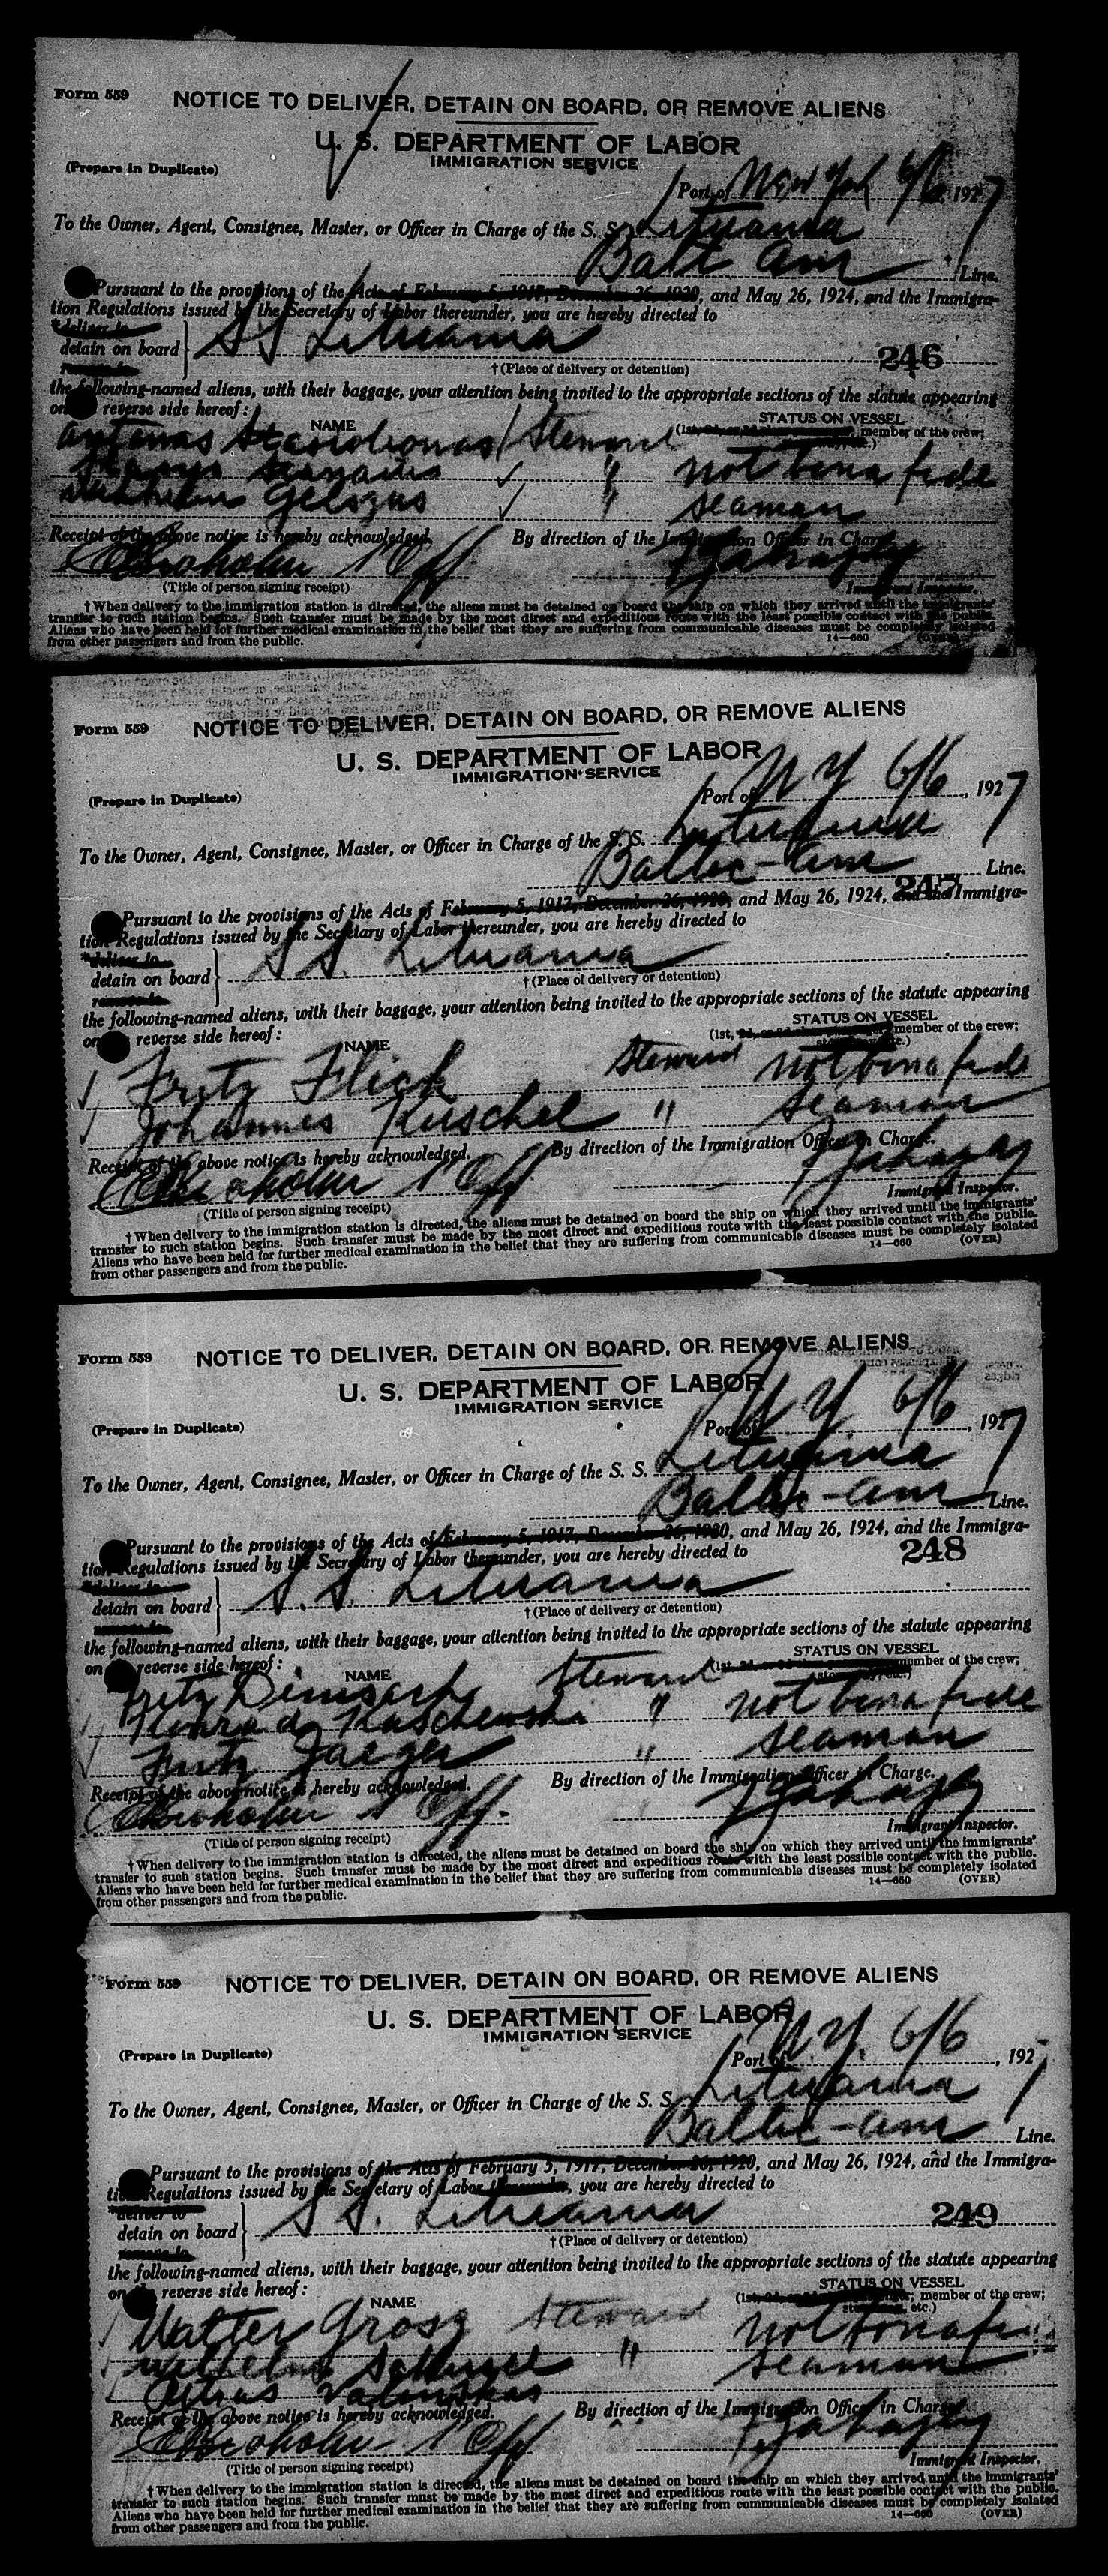 Form 559
NOTICE TO DELIVER, DETAIN ON BOARD, OR REMOVE ALIENS
U. S. DEPARTMENT OF LABOR
IMMIGRATION SERVICE
(Prepare in Duplicate)
Port of New York 6/6, 1927
To the Owner, Agent, Consignee, Master, or Officer in Charge of the S. S. Lituania
Balt Am Line.
Pursuant to the provisions of the Acts of February 5, 1917, December 26, 1920, and May 26, 1924, and the Immigra-
tion Regulations issued by the Secretary of Labor thereunder, you are hereby directed to
*deliver to
detain on board SS Lituania
remove to
†(Place of delivery or detention)
246
the following-named aliens, with their baggage, your attention being invited to the appropriate sections of the statute appearing
on reverse side hereof:
NAME
STATUS ON VESSEL
(1st, member of the crew;
etc.)
Antanas Steward
" not bona fide
Gelszus " seaman
Receipt of the above notice is hereby acknowledged.
By direction of the Immigration Officer in Charge.
1 Off
(Title of person signing receipt)
Immigrant Inspector.
†When delivery to the immigration station is directed, the aliens must be detained on board the ship on which they arrived until the immigrants'
transfer to such station begins. Such transfer must be made by the most direct and expeditious route with the least possible contact with the public.
Aliens who have been held for further medical examination in the belief that they are suffering from communicable diseases must be completely isolated
from other passengers and from the public.
14—660 (OVER)
Form 559
NOTICE TO DELIVER, DETAIN ON BOARD, OR REMOVE ALIENS
U. S. DEPARTMENT OF LABOR
IMMIGRATION SERVICE
(Prepare in Duplicate)
Port of N Y 6/6, 1927
To the Owner, Agent, Consignee, Master, or Officer in Charge of the S. S. Lituania
Baltic-Am Line.
247
Pursuant to the provisions of the Acts of February 5, 1917, December 26, 1920, and May 26, 1924, and the Immigra-
tion Regulations issued by the Secretary of Labor thereunder, you are hereby directed to
*deliver to
detain on board S S. Lituania
remove to
†(Place of delivery or detention)
the following-named aliens, with their baggage, your attention being invited to the appropriate sections of the statute appearing
on reverse side hereof:
NAME
STATUS ON VESSEL
(1st, member of the crew;
etc.)
Fritz Flick Steward not bona fide
Johannes Kuschel " seaman
Receipt of the above notice is hereby acknowledged.
By direction of the Immigration Officer in Charge.
1 Off
(Title of person signing receipt)
Immigrant Inspector.
†When delivery to the immigration station is directed, the aliens must be detained on board the ship on which they arrived until the immigrants'
transfer to such station begins. Such transfer must be made by the most direct and expeditious route with the least possible contact with the public.
Aliens who have been held for further medical examination in the belief that they are suffering from communicable diseases must be completely isolated
from other passengers and from the public.
14—660 (OVER)
Form 559
NOTICE TO DELIVER, DETAIN ON BOARD, OR REMOVE ALIENS
U. S. DEPARTMENT OF LABOR
IMMIGRATION SERVICE
(Prepare in Duplicate)
Port of N Y 6/6, 1927
To the Owner, Agent, Consignee, Master, or Officer in Charge of the S. S. Lituania
Baltic-Am Line.
Pursuant to the provisions of the Acts of February 5, 1917, December 26, 1920, and May 26, 1924, and the Immigra-
tion Regulations issued by the Secretary of Labor thereunder, you are hereby directed to
248
*deliver to
detain on board S. S. Lituania
remove to
†(Place of delivery or detention)
the following-named aliens, with their baggage, your attention being invited to the appropriate sections of the statute appearing
on reverse side hereof:
NAME
STATUS ON VESSEL
(1st, 2d, member of the crew;
etc.)
Fritz Steward
" not bona fide
Fritz Jaeger " seaman
Receipt of the above notice is hereby acknowledged.
By direction of the Immigration Officer in Charge.
1 Off.
(Title of person signing receipt)
Immigrant Inspector.
†When delivery to the immigration station is directed, the aliens must be detained on board the ship on which they arrived until the immigrants'
transfer to such station begins. Such transfer must be made by the most direct and expeditious route with the least possible contact with the public.
Aliens who have been held for further medical examination in the belief that they are suffering from communicable diseases must be completely isolated
from other passengers and from the public.
14—660 (OVER)
Form 559
NOTICE TO DELIVER, DETAIN ON BOARD, OR REMOVE ALIENS
U. S. DEPARTMENT OF LABOR
IMMIGRATION SERVICE
(Prepare in Duplicate)
Port of N.Y. 6/6, 1927
To the Owner, Agent, Consignee, Master, or Officer in Charge of the S. S. Lituania
Baltic-Am Line.
Pursuant to the provisions of the Acts of February 5, 1917, December 26, 1920, and May 26, 1924, and the Immigra-
tion Regulations issued by the Secretary of Labor thereunder, you are hereby directed to
*deliver to
detain on board S S. Lituania
remove to
†(Place of delivery or detention)
249
the following-named aliens, with their baggage, your attention being invited to the appropriate sections of the statute appearing
on reverse side hereof:
NAME
STATUS ON VESSEL
(1st, 2d, member of the crew;
etc.)
Walter Grosz Steward not bona fide
Wilhelm " seaman
Receipt of the above notice is hereby acknowledged.
By direction of the Immigration Officer in Charge.
1 Off
(Title of person signing receipt)
Immigrant Inspector.
†When delivery to the immigration station is directed, the aliens must be detained on board the ship on which they arrived until the immigrants'
transfer to such station begins. Such transfer must be made by the most direct and expeditious route with the least possible contact with the public.
Aliens who have been held for further medical examination in the belief that they are suffering from communicable diseases must be completely isolated
from other passengers and from the public.
14—660 (OVER)